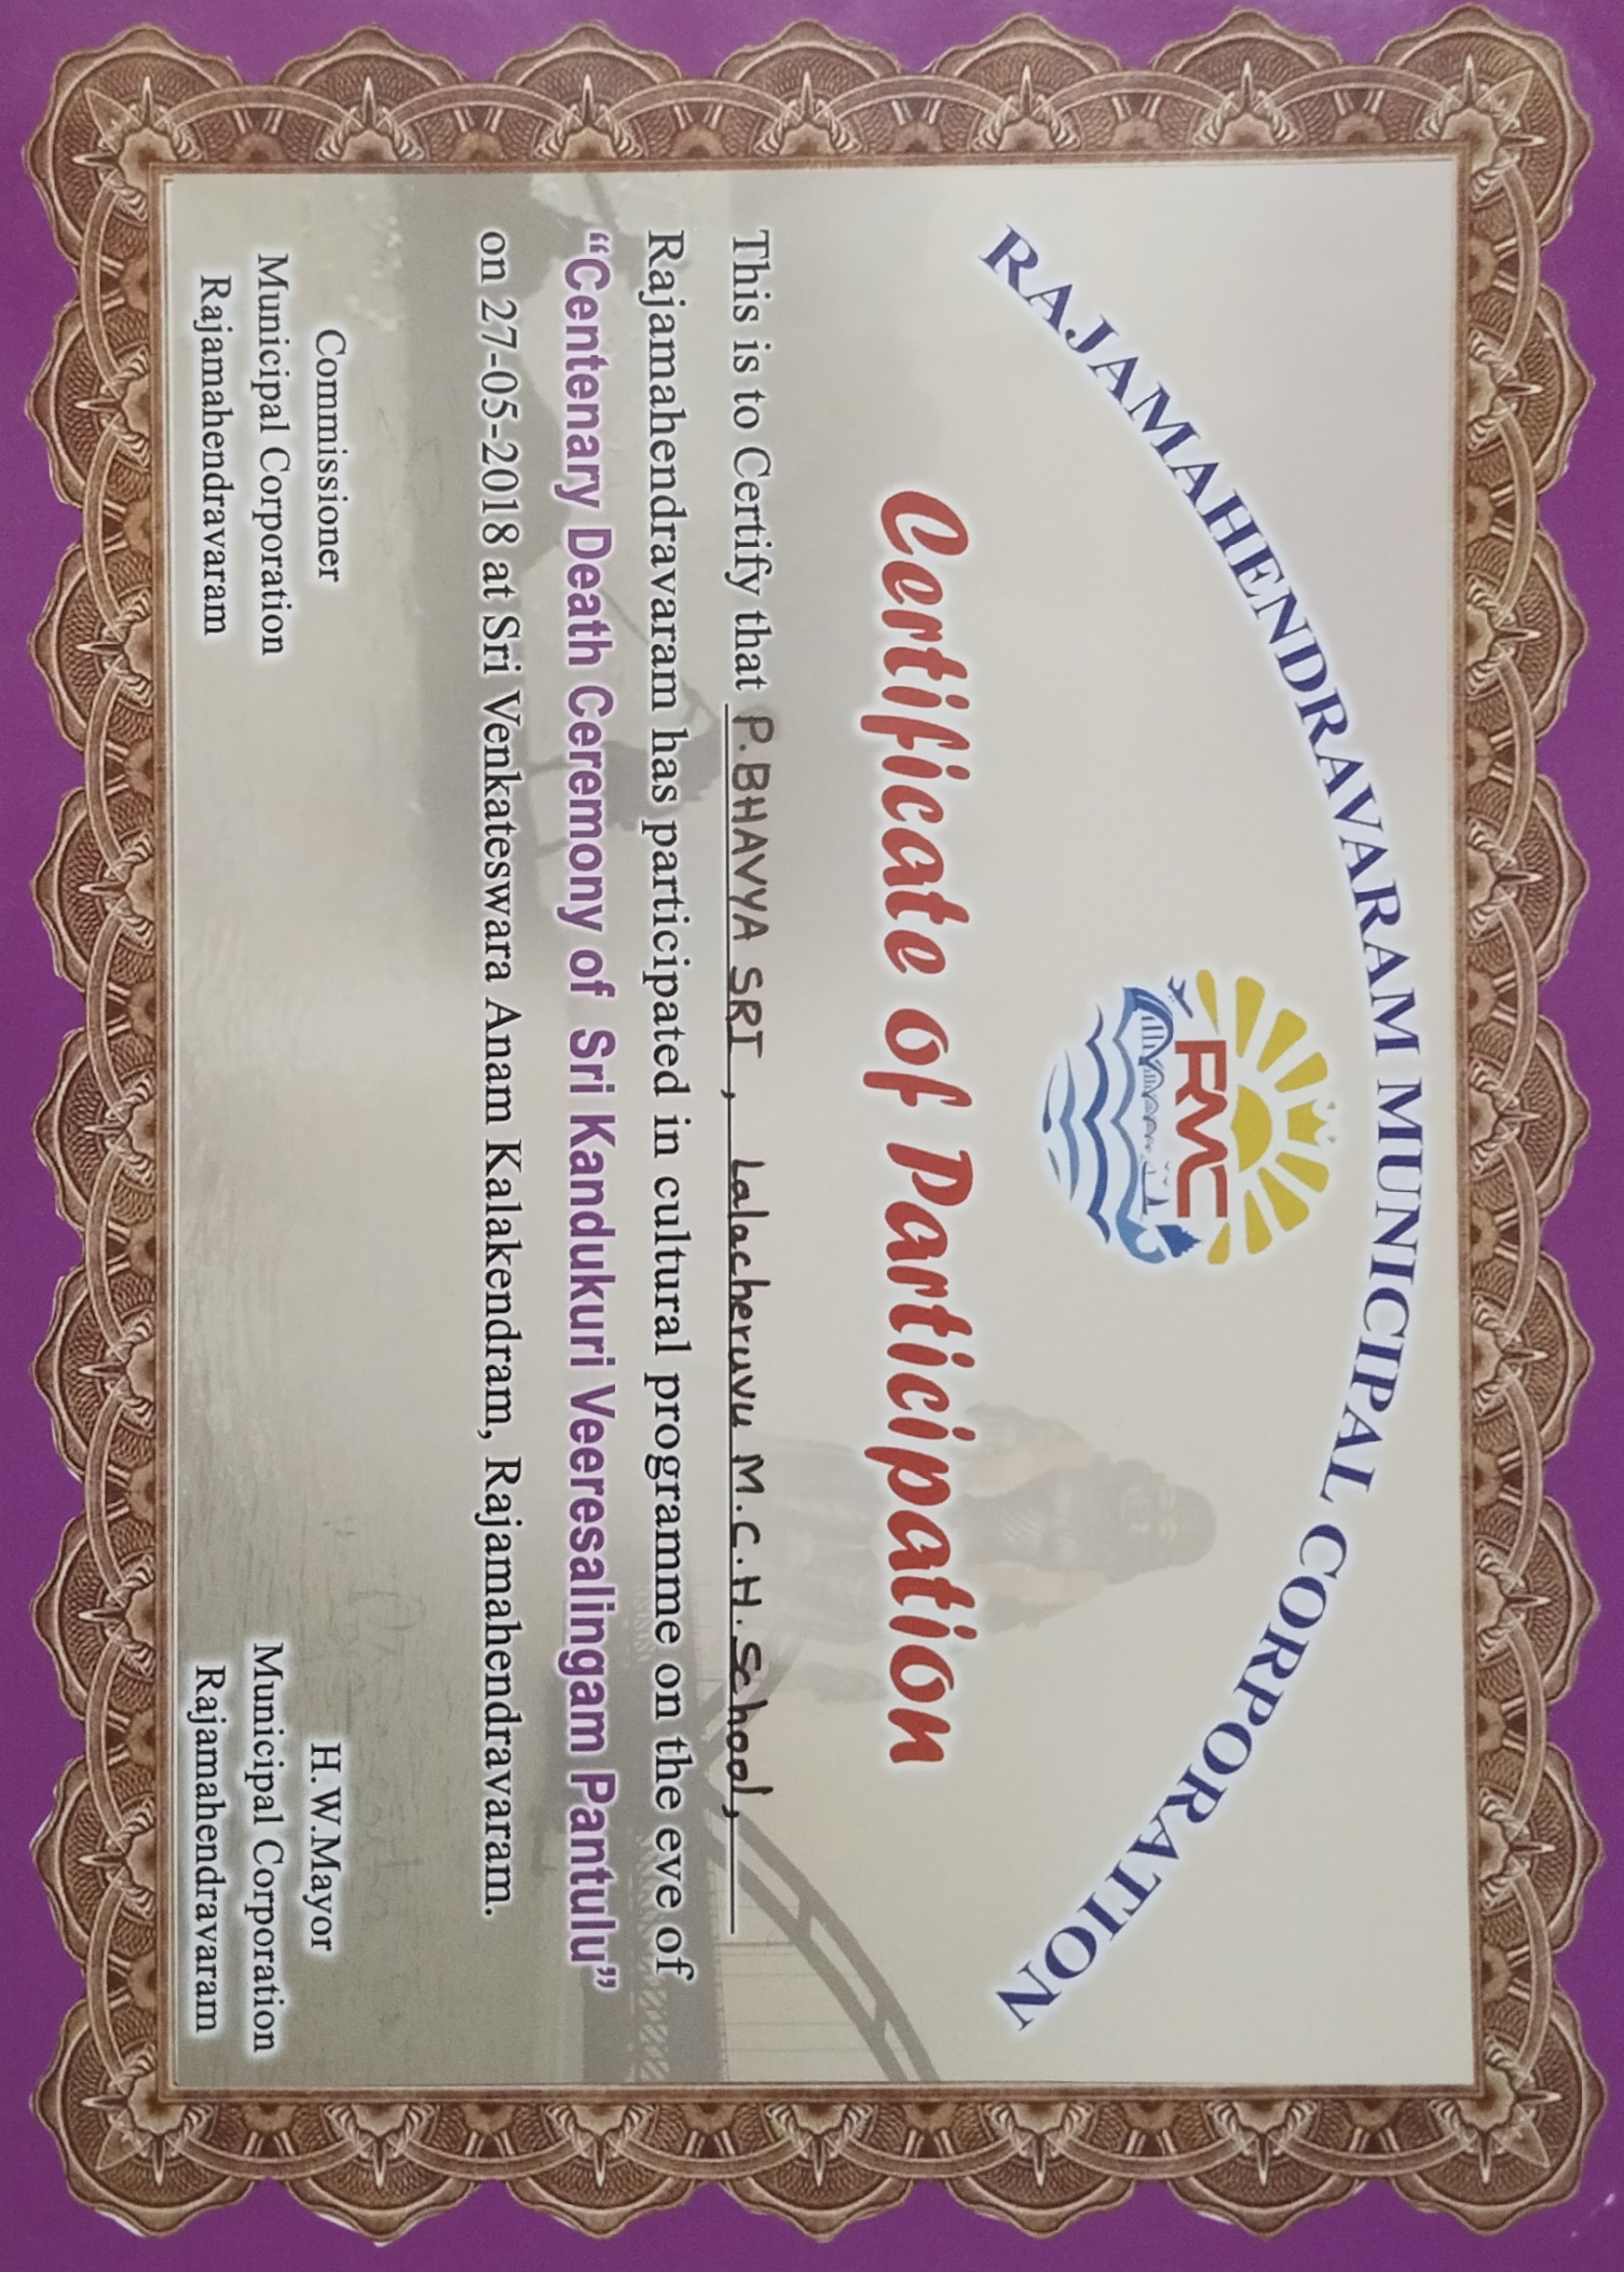 RAJAMAHENDRAVARAM MUNICIPAL CORPORATION
RMC
Certificate of Participation
This is to Certify that P. BHAVYA SRI , Lalacheruvu M.C.H. School,
Rajamahendravaram has participated in cultural programme on the eve of
“Centenary Death Ceremony of Sri Kandukuri Veeresalingam Pantulu”
on 27-05-2018 at Sri Venkateswara Anam Kalakendram, Rajamahendravaram.
Commissioner
Municipal Corporation
Rajamahendravaram
H.W.Mayor
Municipal Corporation
Rajamahendravaram